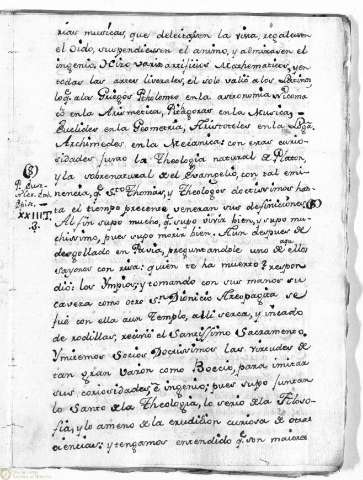 rias musicas, que deleitassen la vista, regalassen
el oido, suspendiessen el animo, y admirassen el
ingenio. Hizo varios artificios Mathematicos, y en
todas las artes liberales, el solo valió a los Latinos
lo q. a los Griegos Ptholomeo en la astronomia Nicoma
co en la Arismetica, Pitagoras en la Musica,
Euclides en la Geometria, Aristoteles en la Loga,
Archimedes en la Mecanica: con otras curio
sidades juntó la Theologia natural de Platon,
y la sobrenatural de el Evangelio, con tal emi
nencia, q. Sto. Thomas, y Theologos doctissimos has
ta el tiempo presente veneran sus definiciones. (8)
Al fin supo mucho, q. supo vivir bien, y supo mu
chissimo, pues supo morir bien. Aun despues de
degollado en Pavia, preguntandole uno de ellos
sayones con risa: quien te ha muerto? respon
dió: los Ympios; y tomando con sus manos su
cavesa como otro Sn. Dionicio Areopagita se
fué con ella a un Templo, alli serca, y incado
de rodillas, reciuió el Santissimo Sacramento.
Ymitemos Socios Doctissimos las virtudes de
tan gran varon como Boecio, para imitar
sus curiosidades, è ingenio; pues supo juntar
lo Santo de la Theologia, lo serio de la Filoso-
fia, y lo ameno de la erudicion curiosa de otras
ciencias: y tengamos entendido q. son mayores
(8)
XXIII